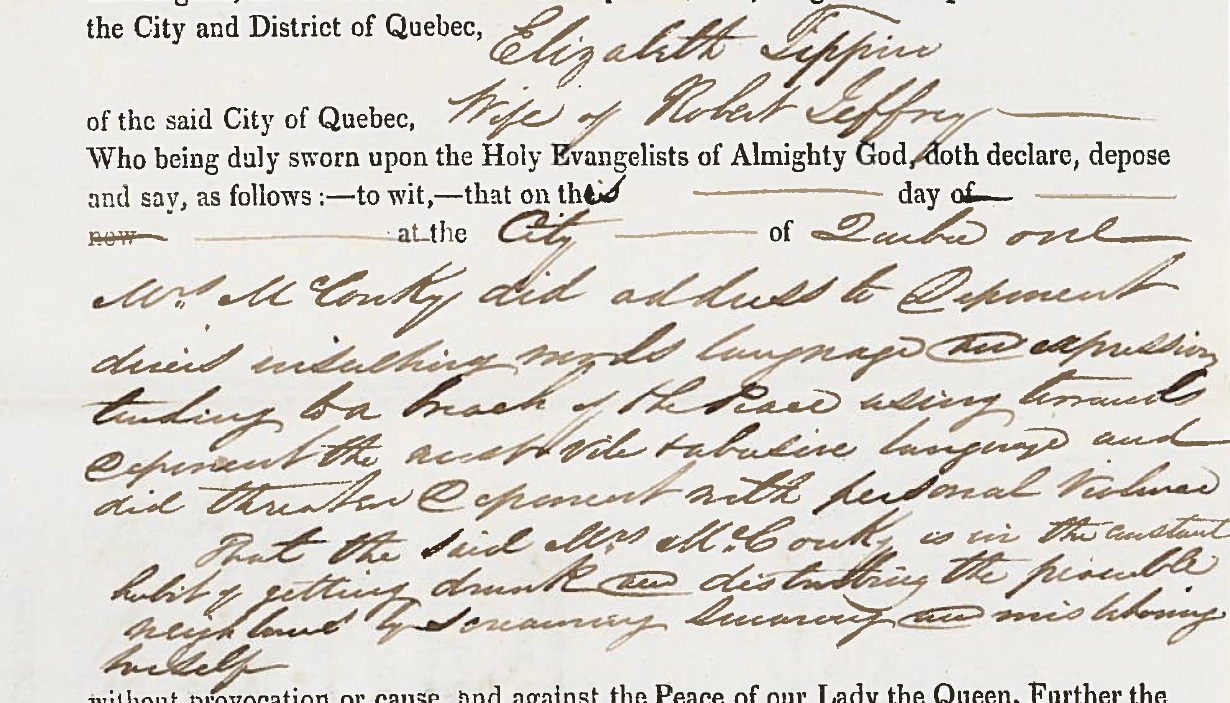 the City and District of Quebec, Elizabeth Tippin
of the said City of Quebec, Wife of Robert Jeffrey
Who being duly sworn upon the Holy Evangelists of Almighty God, doth declare, depose
and say, as follows :—to wit,—that on this day of
now at the City of Quebec one
Mrs McConky did address to Deponent
divers insulting words language and expression
tending to a breach of the Peace using towards
Deponent the most vile & abusive language and
did threaten Deponent with personal Violence
That the said Mrs McConky is in the constant
habit of getting drunk and disturbing the peaceable
neighbours by screaming swearing and misbehaving
herself
without provocation or cause, and against the Peace of our Lady the Queen. Further the